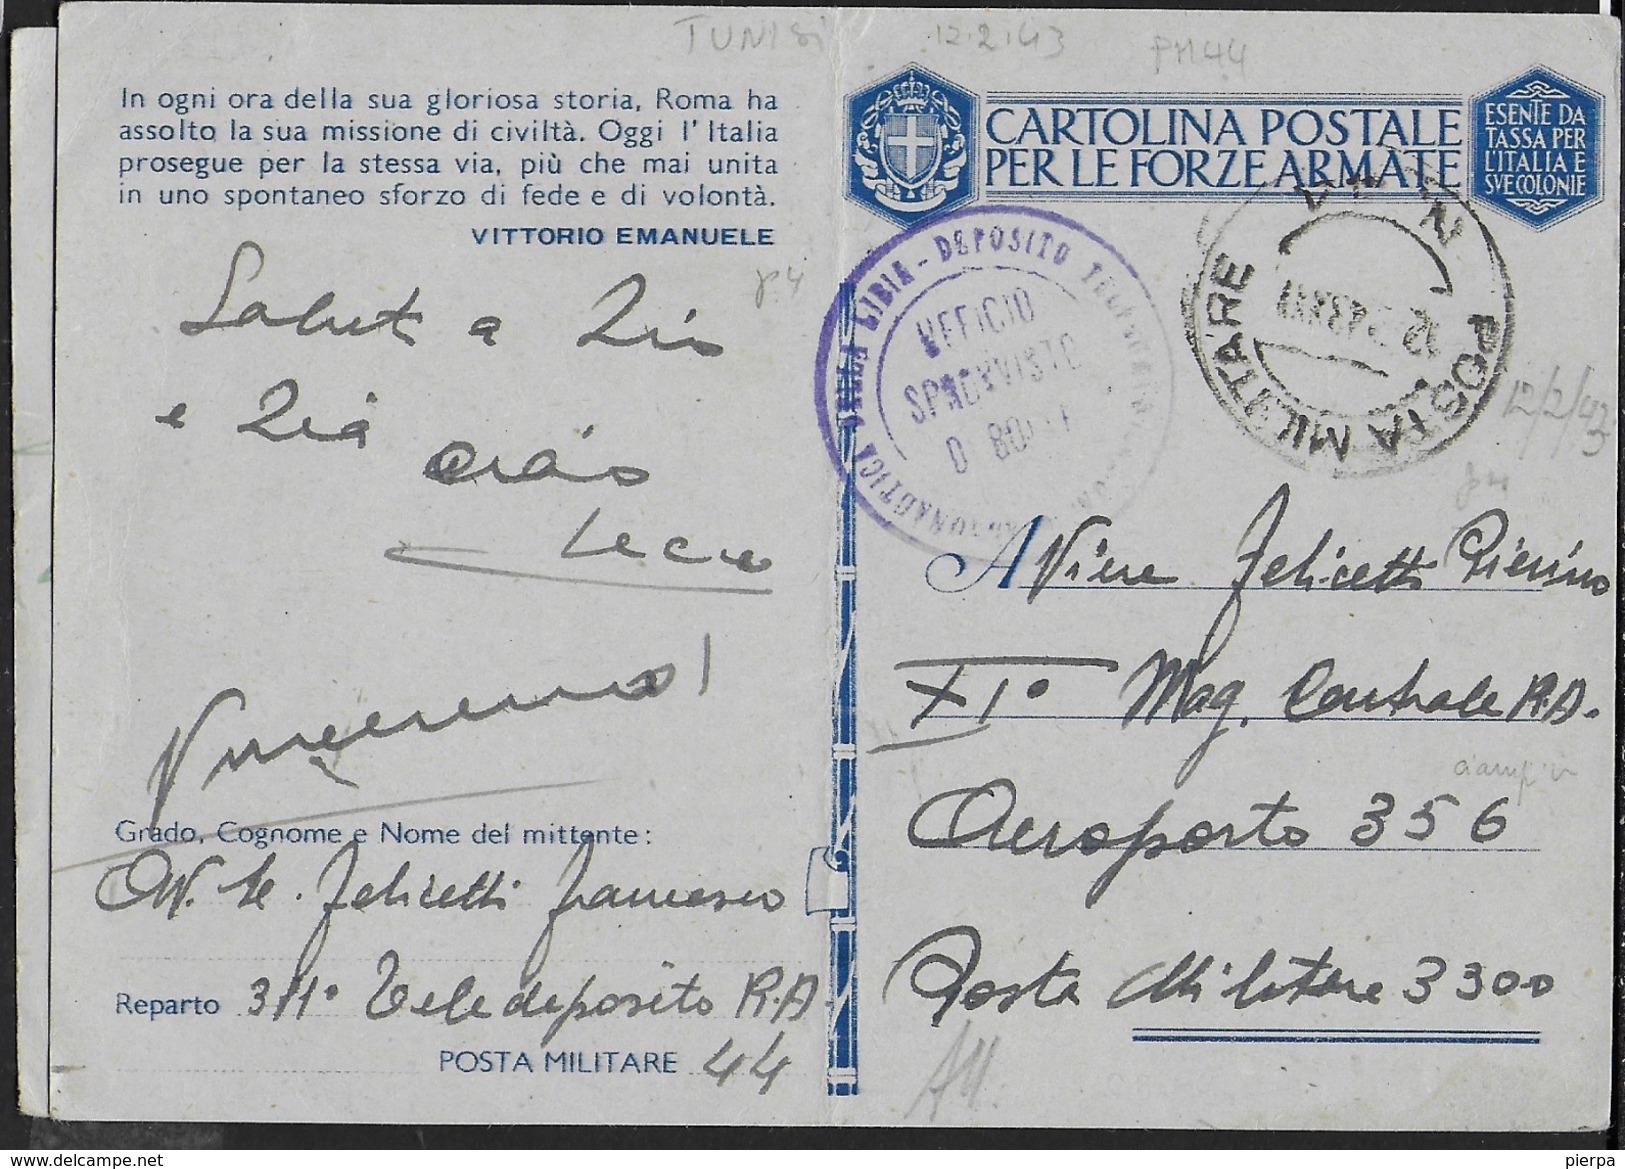 TUNISI
12.2.43
PM44
In ogni ora della sua gloriosa storia, Roma ha
assolto la sua missione di civiltà. Oggi l'Italia
prosegue per la stessa via, più che mai unita
in uno spontaneo sforzo di fede e di volontà.
VITTORIO EMANUELE
Saluti a Zio
e Zia
ciao
Vinceremo!
Grado, Cognome e Nome del mittente:
Av. Felicetti Francesco
Reparto 3/1° Teledeposito R.A.
POSTA MILITARE 44
CARTOLINA POSTALE
PER LE FORZE ARMATE
ESENTE DA
TASSA PER
L'ITALIA E
SVE COLONIE
LIBIA - DEPOSITO
UFFICIO
SPROVVISTO
DI BOLLI
POSTA MILITARE
12/2/43
A Viere Felicetti Pierino
XI° Mag. Centrale R.A.
ciampin
Aeroporto 356
Posta Militare 3300
pierpa
delcampe.net